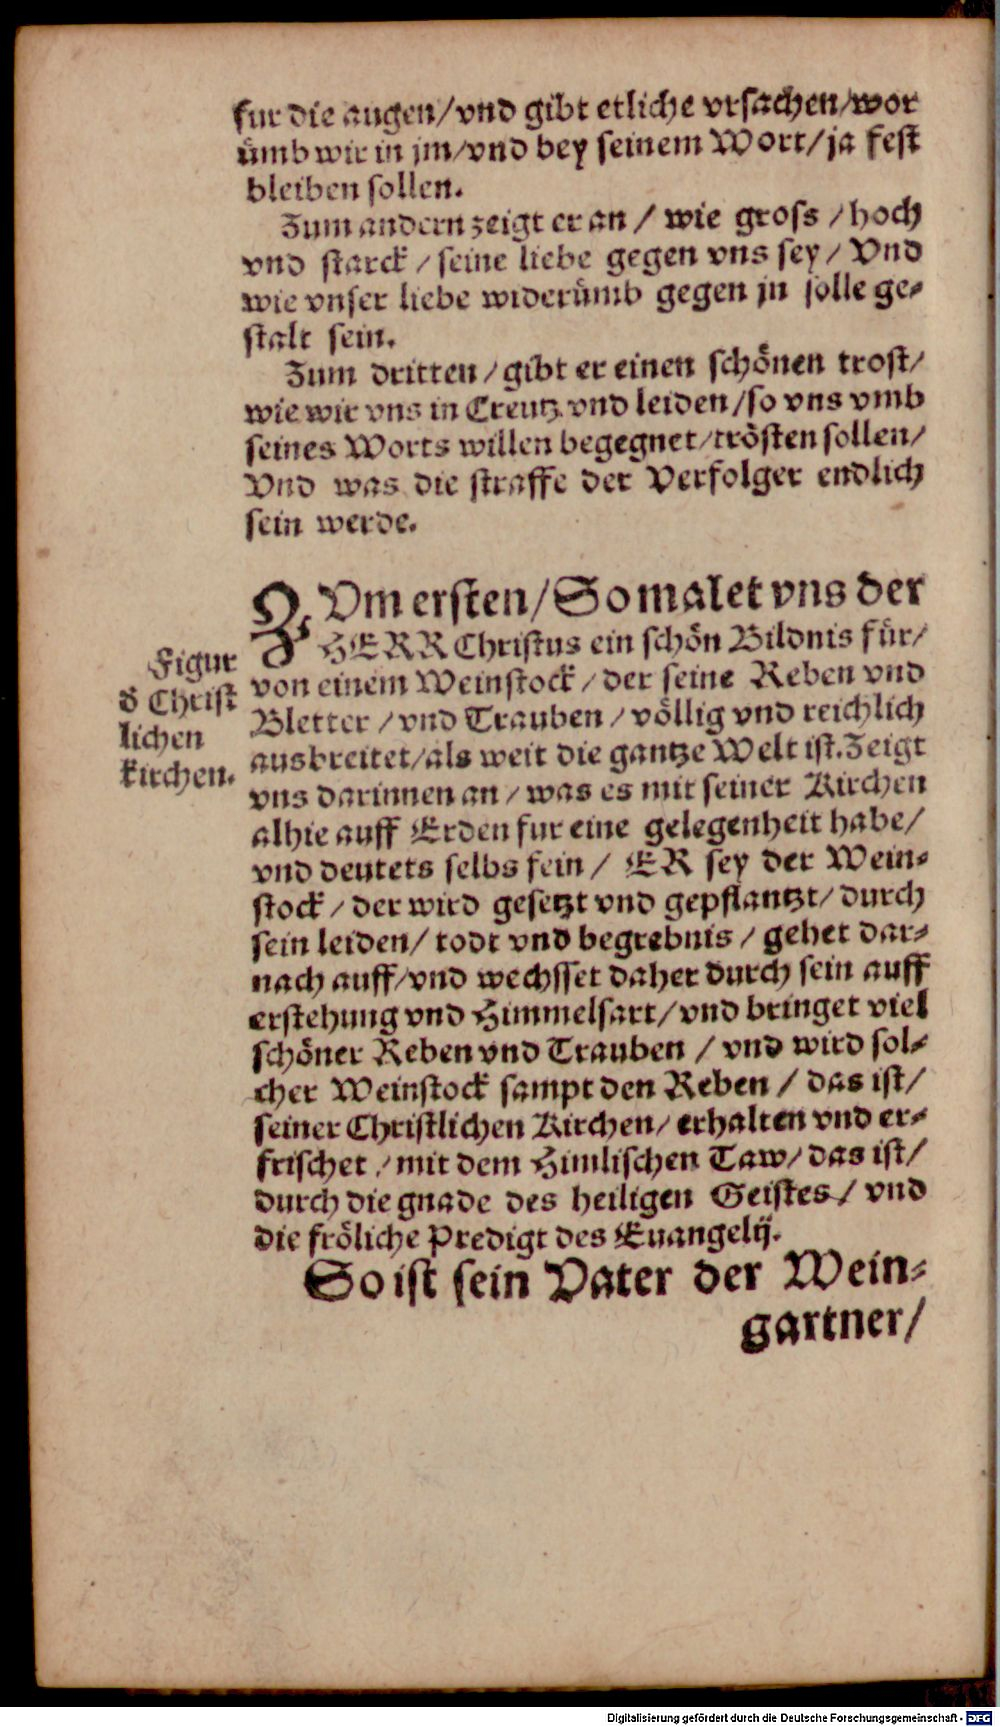 fur die augen/vnd gibt etliche vrsachen/wor
ůmb wir in jm/vnd bey seinem Wort/ja fest
bleiben sollen.
Zum andern zeigt er an / wie gross /hoch
vnd starck / seine liebe gegen vns sey/ Vnd
wie vnser liebe widerůmb gegen jn solle ge-
stalt sein.
Zum dritten/gibt er einen schönen trost/
wie wir vns in Creutz vnd leiden/so vns vmb
seines Worts willen begegnet/trösten sollen/
Vnd was die straffe der Verfolger endlich
sein werde.
ZVm ersten/So malet vns der
HERR Christus ein schön Bildnis für/
von einem Weinstock / der seine Reben vnd
Bletter /vnd Trauben / völlig vnd reichlich
ausbreitet/als weit die gantze Welt ist.Zeigt
vns darinnen an / was es mit seiner Kirchen
alhie auff Erden fur eine gelegenheit habe/
vnd deutets selbs fein / ER sey der Wein-
stock / der wird gesetzt vnd gepflantzt/ durch
sein leiden/ todt vnd begrebnis / gehet dar-
nach auff/vnd wechsset daher durch sein auff
erstehung vnd Himmelsart/vnd bringet viel
schöner Reben vnd Trauben / vnd wird sol-
cher Weinstock sampt den Reben / das ist/
seiner Christlichen Kirchen/ erhalten vnd er-
frischet / mit dem Himlischen Taw/ das ist/
durch die gnade des heiligen Geistes/ vnd
die fröliche Predigt des Euangelij.
So ist sein Vater der Wein-
gartner/
Figur
d Christ
lichen
kirchen.
Digitalisierung gefördert durch die Deutsche Forschungsgemeinschaft - DFG